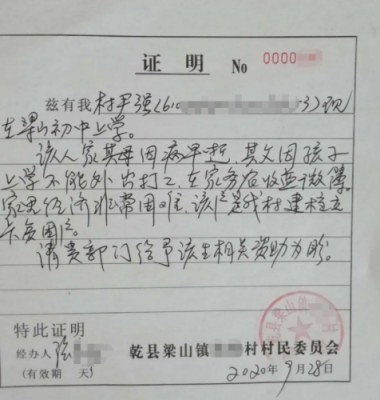 证 明 No 0000
兹有我村尹强(610 3)现
在梁山初中上学。
该人家其母因病早逝,其父因孩子
上学不能外出打工,在家务农收益微薄。
家里经济非常困难,该信是我村建档立
卡贫困户。
请贵部门给予该生相关资助为盼。
特此证明
经办人 张
乾县梁山镇 村村民委员会
(有效期 天)
2020年9月28日
乾县梁山镇